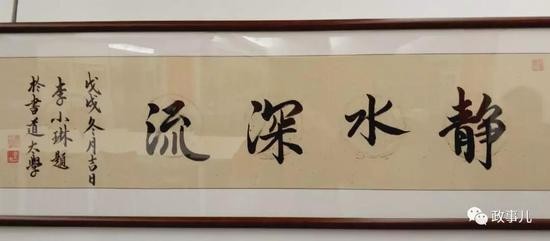 静水深流
戊戌冬月吉日
李小琳题
於书道大學
政事儿